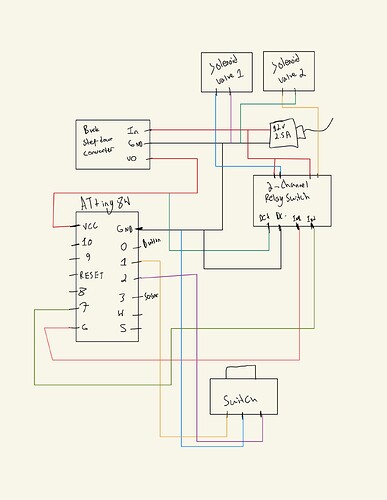 Solenoid
valve 1
Solenoid
valve 2
12v
2.5A
Buck
step down
converter
In
GND
VO
2-Channel
Relay Switch
DC+
DC-
In2
In1
ATtiny 84
VCC
10
9
RESET
8
7
6
GND
0
Button
1
2
3
4
5
Switch